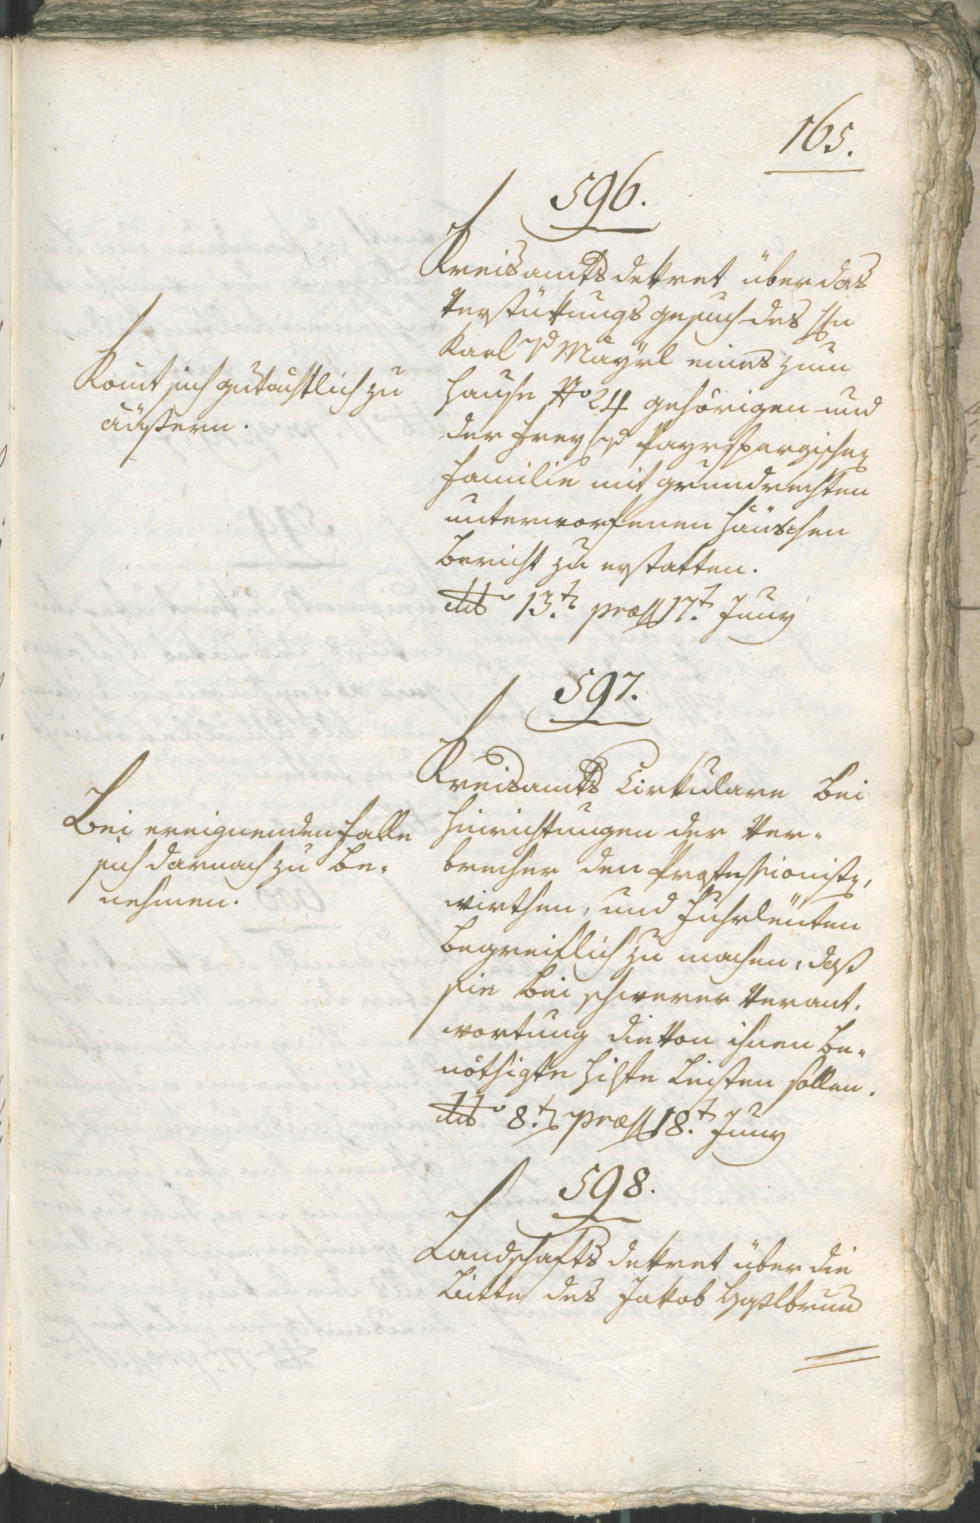 165.
596.
Kreisamtsdekret über das
Verstückungsgesuch des Hn
Karl v Mayrl eines zum
Hause No 24 gehörigen und
der Frey v Payrspergischen
Familie mit Grundrechten
unterworfenen Häuschen
Bericht zu erstatten.
dto 13.t præs 17.t Juny
Komt sich gutächtlich zu
äüßern.
597.
Kreisamts Cirkulare bei
Hinrichtungen der Ver-
brecher den Professionisten,
Wirthen, und Fuhrleüten
begreiflich zu machen, daß
sie bei schwerer Verant-
wortung die von ihnen be-
nöthigte Hilfe leisten sollen.
dto 8.t præs 18.t Juny
Bei ereignenden Falle
sich darnach zu be-
nehmen.
598.
Landschafts dekret über die
Bitte des Jakob